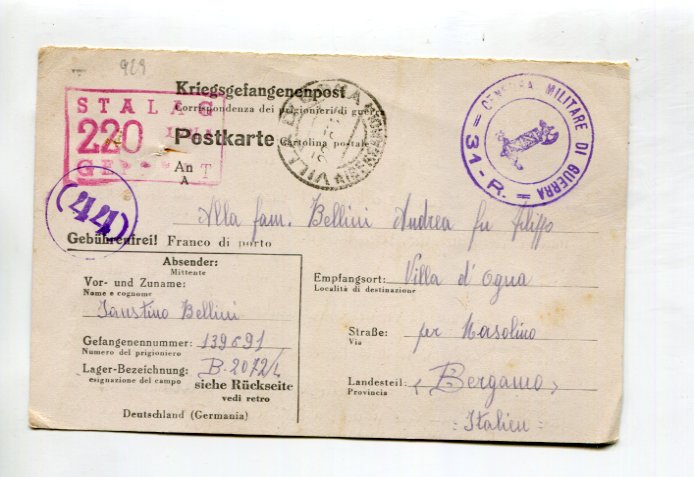 929
Kriegsgefangenenpost
Corrispondenza dei prigionieri di guerra
STALAG
220
GE T
Postkarte Cartolina postale
CENSURA MILITARE DI GUERRA
= 31-R. =
An
A
(44)
Alla fam. Bellini Andrea fu Filippo
Gebührenfrei! Franco di porto
Absender:
Mittente
Vor- und Zuname:
Nome e cognome
Faustino Bellini
Gefangenennummer: 139691
Numero del prigioniero
Lager-Bezeichnung: B-2072/L
esignazione del campo
siehe Rückseite
vedi retro
Deutschland (Germania)
Empfangsort: Villa d'Ogna
Località di destinazione
Straße: per Nasolino
Via
Landesteil: (Bergamo)
Provincia
= Italien =